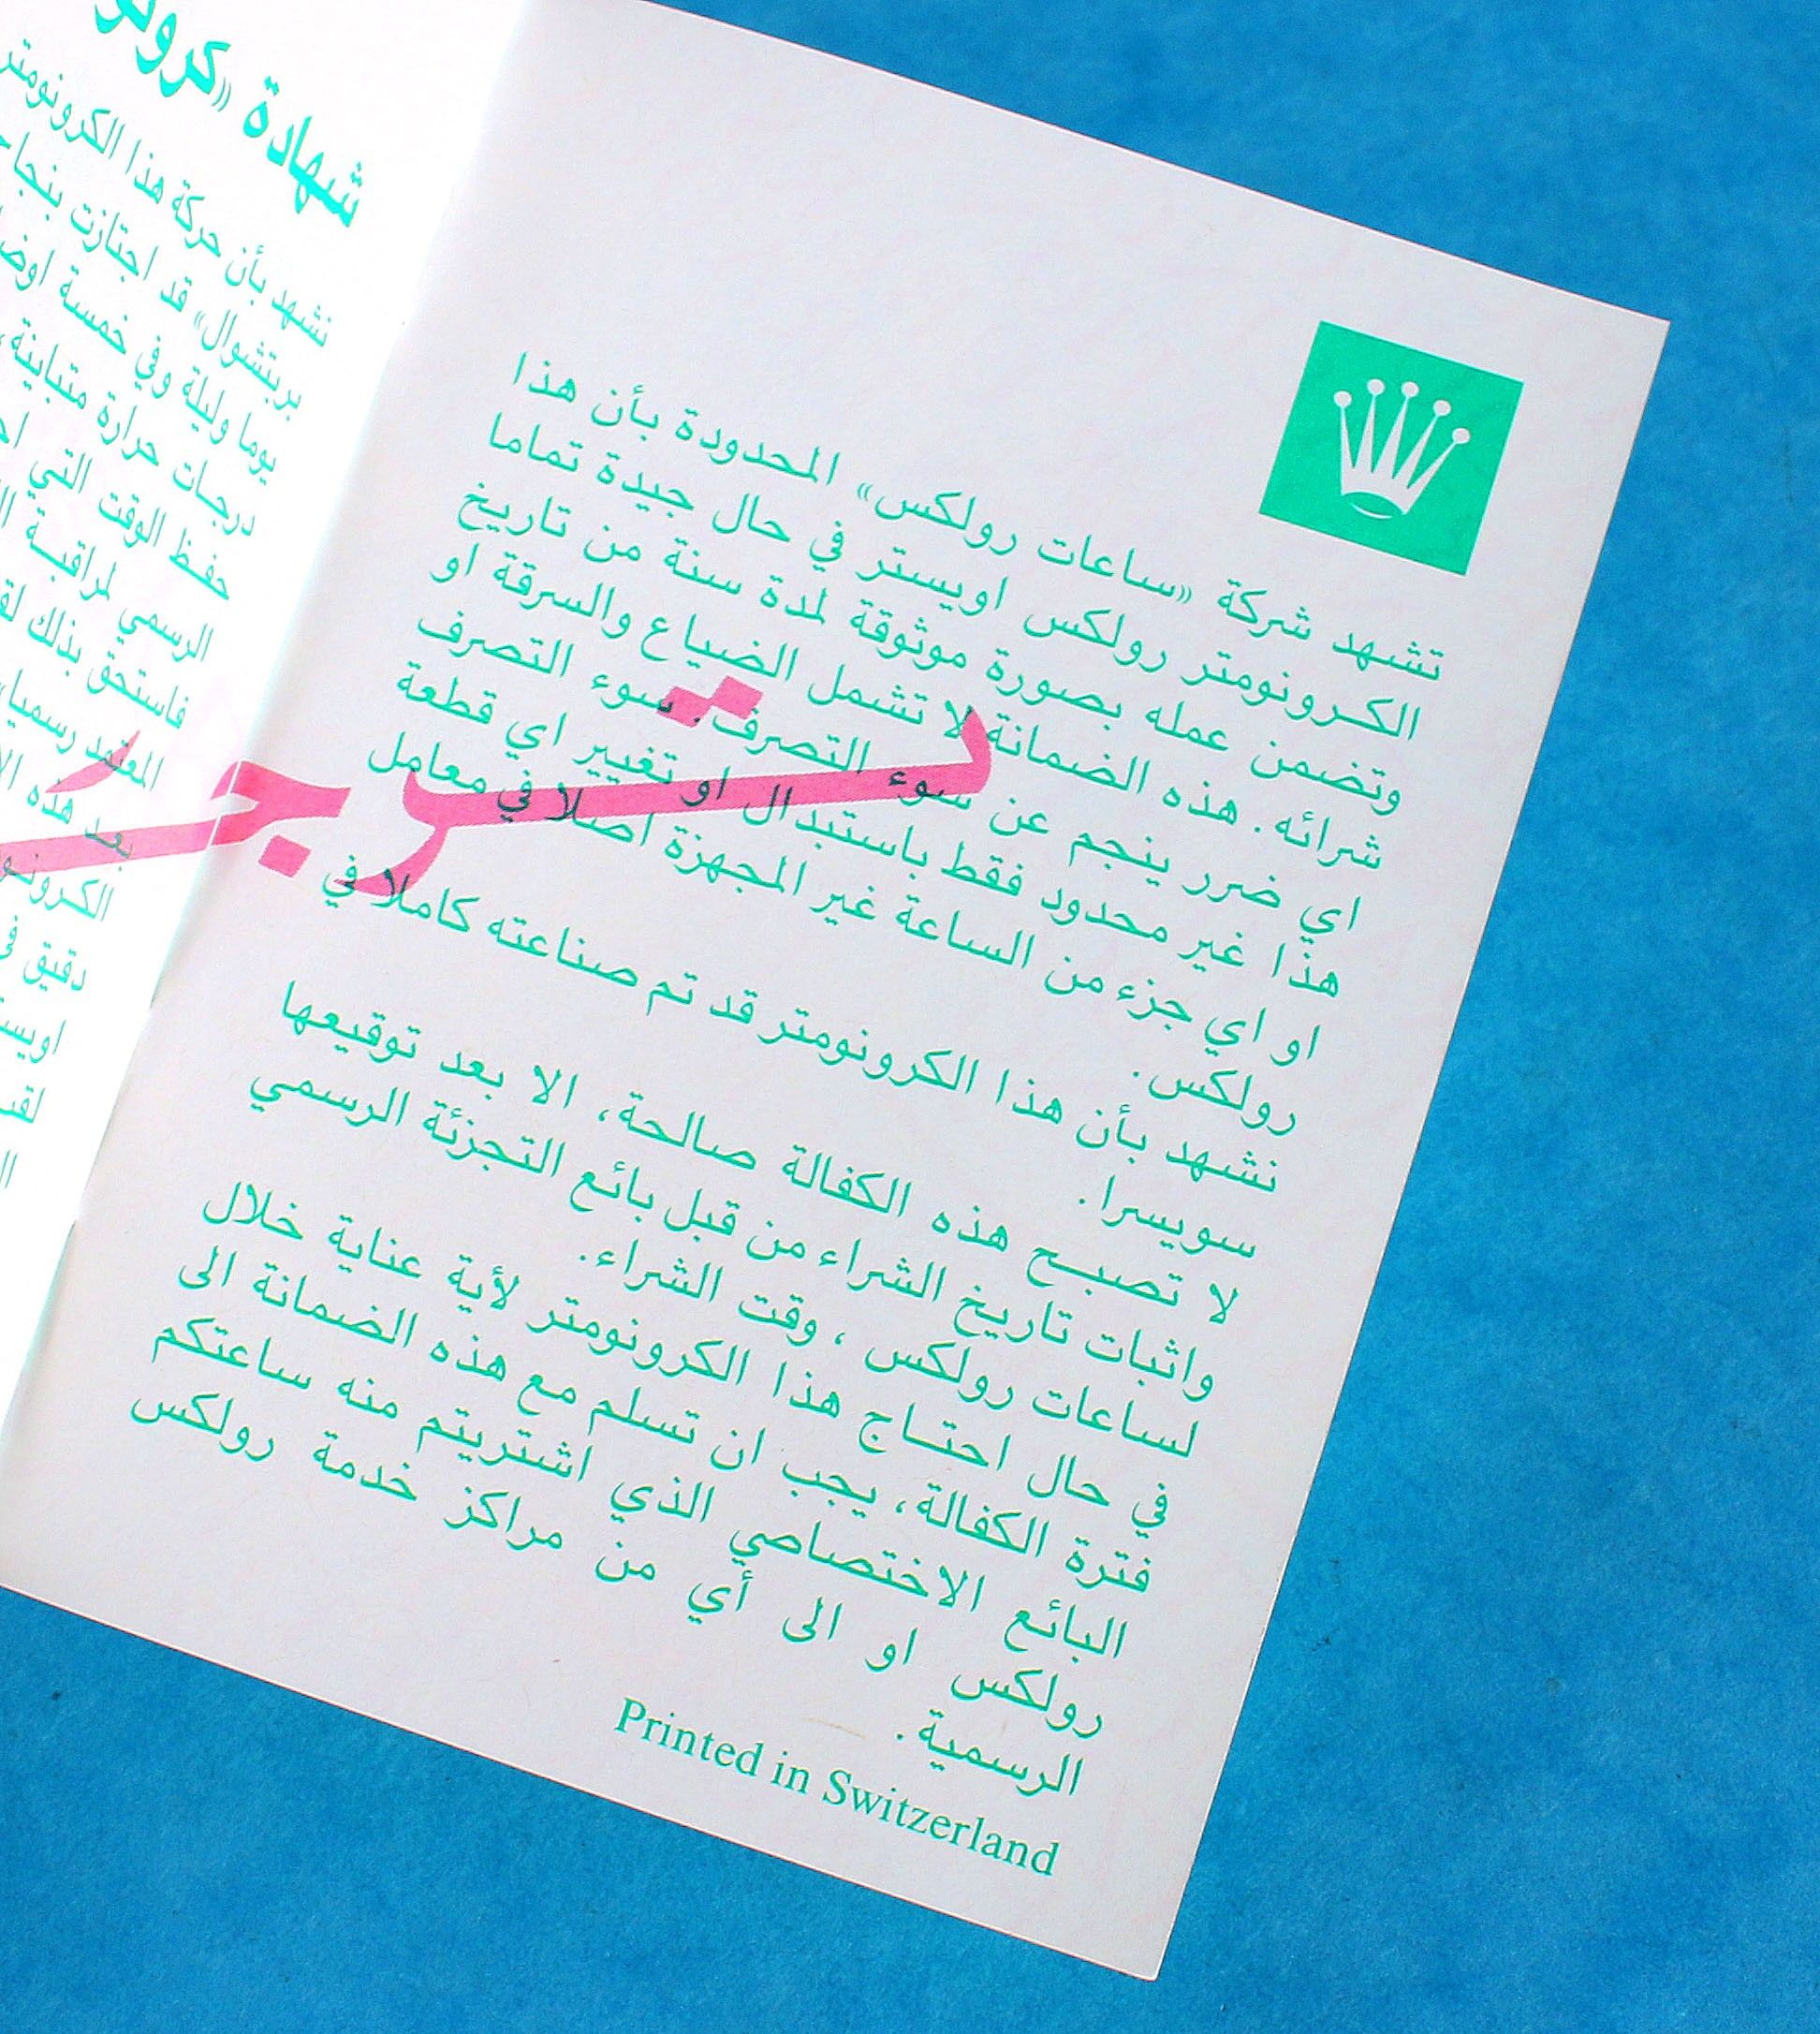 تشهد شركة «ساعات رولكس» المحدودة بأن هذا
الكرونومتر رولكس اويستر في حال جيدة تماما
وتضمن عمله بصورة موثوقة لمدة سنة من تاريخ
شرائه. هذه الضمانة لا تشمل الضياع والسرقة او
اي ضرر ينجم عن سوء التصرف. سوء التصرف
هذا غير محدود فقط باستبدال او تغيير اي قطعة
او اي جزء من الساعة غير المجهزة اصلا في معامل
رولكس.
نشهد بأن هذا الكرونومتر قد تم صناعته كاملا في
سويسرا.
لا تصبح هذه الكفالة صالحة، الا بعد توقيعها
واثبات تاريخ الشراء من قبل بائع التجزئة الرسمي
لساعات رولكس، وقت الشراء.
في حال احتاج هذا الكرونومتر لأية عناية خلال
فترة الكفالة، يجب ان تسلم مع هذه الضمانة الى
البائع الاختصاصي الذي اشتريتم منه ساعتكم
رولكس او الى أي من مراكز خدمة رولكس
الرسمية.
Printed in Switzerland
شهادة
نشهد بأن حركة هذا الكرونومتر
بربتشوال» قد اجتازت بنجاح
يوما وليلة وفي خمسة
درجات حرارة متباينة،
حفظ الوقت التي
الرسمي لمراقبة
فاستحق بذلك
المعتمد رسميا»
بعد هذه
دقيق